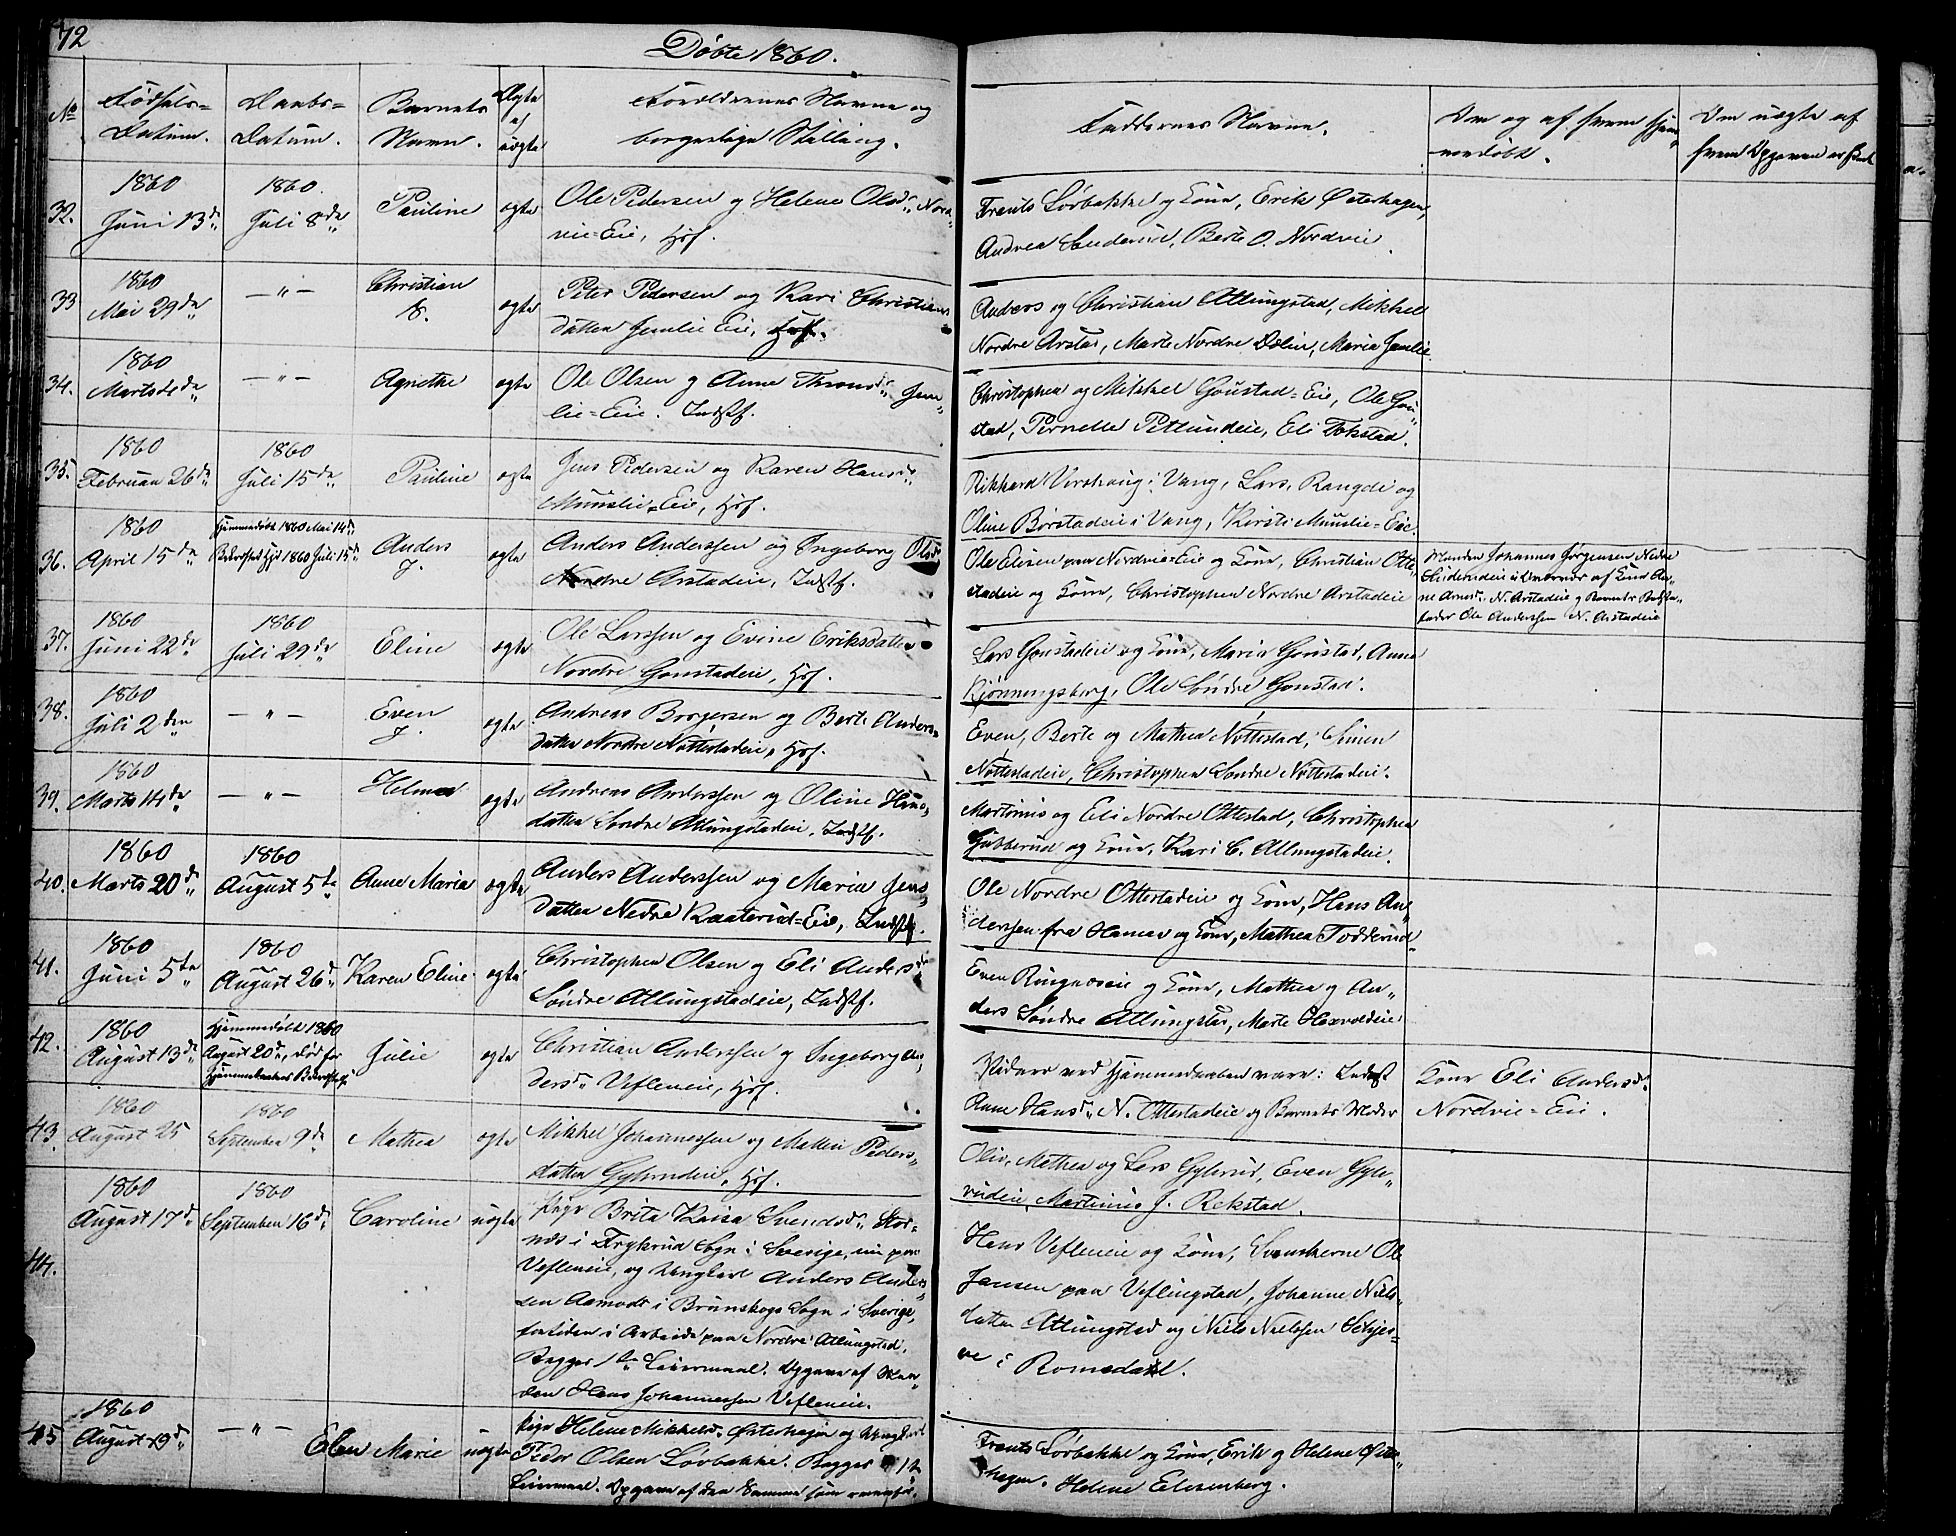 72
Døbte 1860.
No
Fødsels=
Datum.
Daabs=
Datum.
Barnets
Navn.
Ægte
el
uægte
Forældrenes Navne og
borgerlige Stilling.
Faddernes Navne.
Om og af hvem hjem
medøbt.
Om uægte af
hvem Opgaven er skeet
32.
1860
Juni 13de
1860.
Juli 8de
Pauline
ægte
Ole Pedersen og Helene Olsdr. Nord
vie=Eie, Hjf.
Frants Lørbakke og Kone, Erik Østerhagen,
Andrea Sanderud, Berte O. Nordvie.
33
1860
Mai 29de
— " —
Christian
ægte
Peter Pedersen og Kari Christians
datter Jemlie Eie, Hjf.
Anders og Christian Atlungstad, Mikkel
Nordre Arstad, Marte Nordre Dælin, Maria Jemlie.
34.
1860
— " —
Agnethe
ægte
Ole Olsen og Anne Thronsdr. Jem
lie=Eie. Indstf.
Christopher og Mikkel Goustad=Eie, Ole Gou
stad, Pernelle Petlundeie, Eli Tokstad.
35.
1860
Februar 26de
1860
Juli 15de
Pauline
ægte
Jens Pedersen og Karen Hansdr.
Munslie=Eie, Hjf.
Rikhard Vershaug i Vang, Lars Rangdi og
Oline Børstadeie i Vang, Kersti Munslie=Eie.
36.
1860
April 15de
Hjemmedøbt 1860 Mai 14de
1860 Juli 15de
Anders
J.
ægte
Anders Anderssen og Ingeborg Olsdr
Nordre Arstadeie, Indstf.
Ole Elisen paa Nordvie=Eie og Kone, Christian Otte
stadeie og Kone, Christopher Nordre Arstadeie
Manden Johannes Jørgensen Nedre
af Kone An
ne N. Arstadeie og Barnets
fader Ole Anderssen N. Arstadeie
37.
1860
Juni 22de
1860
Juli 29de
Eline
ægte
Ole Larssen og Evine Eriksdatter
Nordre Gonstadeie, Hjf.
Lars Gonstadeie og Kone, Maria Gonstad, Anne
Kjønningsberg, Ole Søndre Gonstad.
38.
1860
Juli 2den
— " —
Even
J.
ægte
Andreas Borgersen og Berte Anders=
datter Nordre Nøttestadeie, Hjf.
Even, Berte og Mathea Nøttestad, Simen
Nøttestadeie, Christopher Søndre Nøttestadeie.
39.
1860
Marts 14de
— " —
Helmer
ægte
Andreas Anderssen og Oline Hans
datter Søndre Atlungstadeie, Indstf.
Martinus og Eli Nordre Ottestad, Christopher
Gubberud og Kone, Kari C. Atlungstadeie.
40.
1860
Marts 20de
1860
August 5te
Anne Maria
ægte
Anders Anderssen og Maria Jens
datter Nedre Kaaterud=Eie, Indstf.
Ole Nordre Ottestadeie og Kone, Hans An
derssen fra Hamar og Kone, Mathea Todderud
41.
1860
Juni 5te
1860
August 26de
Karen Eline
ægte
Christopher Olsen og Eli Andersdr
Søndre Atlungstadeie, Indstf.
Even Ringnæseie og Kone, Mathea og An
ders Søndre Atlungstad, Marte Hexvoldeie
42.
1860
August 13de
Hjemmedøbt 1860
August 20de, død før
Hjemmedaabens Bekræftelse.
Julie
ægte
Christian Anderssen og Ingeborg An
dersdr. Vefleneie, Hjf.
Vidner ved Hjemmedaaben vare: Indst
Anne Hansdr. N. Ottestadeie og Barnets Moder
Kone Eli Andersdr.
Nordvie=Eie.
43
1860
August 25
1860
September 9de
Mathea
ægte
Mikkel Johannessen og Mallin Peders
datter Gylerudeie, Hjf.
Oliv, Mathea og Lars Gylerud, Even Gyle
rudeie, Martinus J. Rekstad.
44.
1860
August 17de
1860
September 16de
Caroline
uægte
Pige Brita Kaisa Svendsdr. Stor
næs i Frykerud Sogn i Sverige, nu paa
Vefleneie, og Ungkarl Anders Anders
sen Aamodt i Brunskogs Sogn i Sverige,
fortiden i Arbeide paa Nordre Atlungstad.
Begges 1ste Leiermaal. Opgave af Man
den Hans Johannessen Vefleneie.
Hans Vefleneie og Kone, Svenskerne Ole
Jansen paa Veflingstad, Johanne Niels
datter Atlungstad og Niels Nielssen
i Romedal.
45
1860
August 19de
— " —
Elen Marie
uægte
Pige Helene Mikkelsdr. Østerhagen og Ungkarl
Peder Olsen Lørbakke. Begges 1ste
Leiermaal. Opgave af den Samme som
Frants Lørbakke og Kone, Erik og Helene Øster
hagen. Helene Elisenberg.